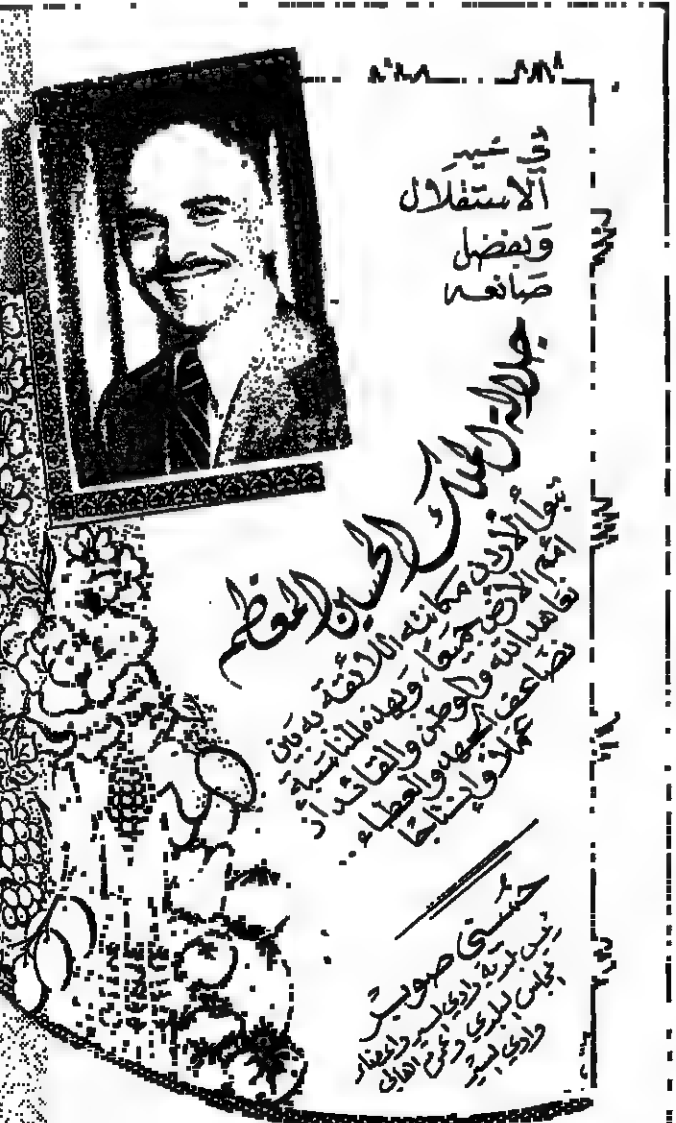 في عيد
الاستقلال
وبفضل
صانعه
جلالة الملك الحسين المعظم
تبوأ الأردن مكانته اللائقة به بين
أمم الأرض جميعا، وبهذه المناسبة
نعاهد الله والوطن والقائد أن
نضاعف الجهد والعطاء ..
عملا وإنتاجا
حسني صويـر
رئيس بلدية وادي السير وأعضاء
المجلس البلدي وعموم أهالي
وادي السير